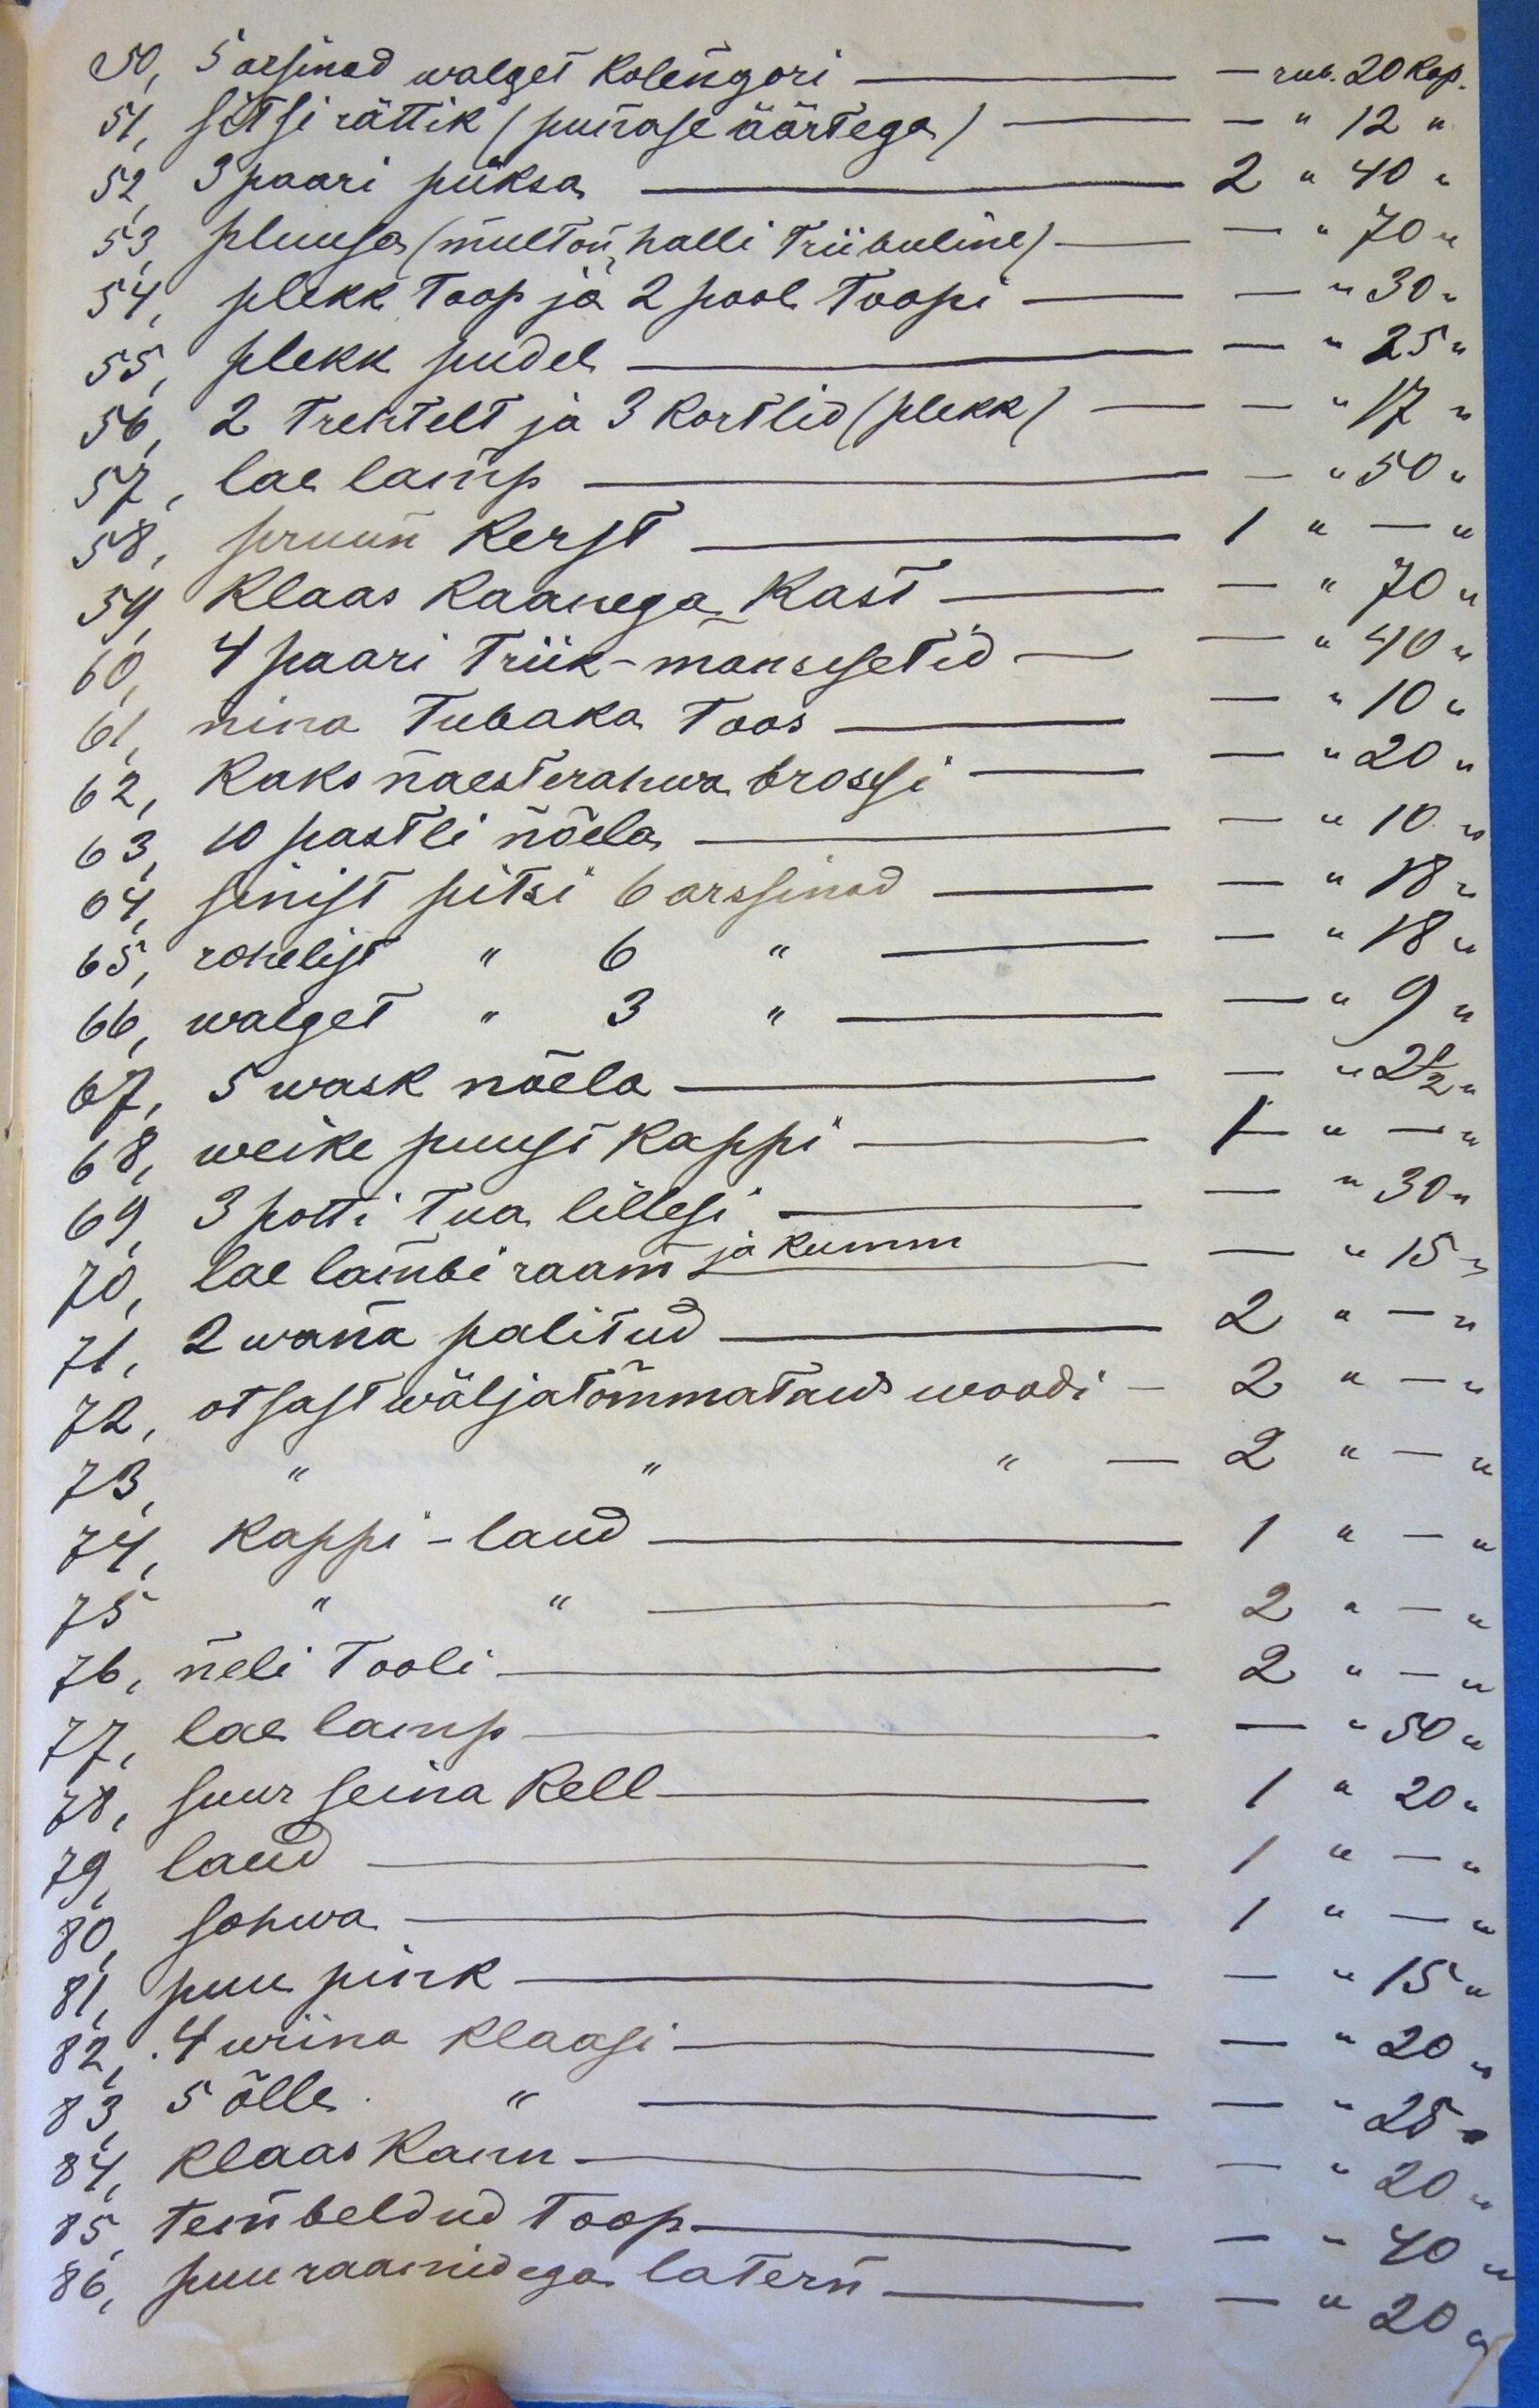 50, 5 arsinad walget kolengori — — rub. 20 kop.
51, sitsi rättik (punase äärtega) — — " 12 "
52, 3 paari püksa — 2 " 40 "
53, pluusa (multon, halli triibuline) — — " 70 "
54, plekk toop ja 2 pool toopi — — " 30 "
55, plekk pudel — — " 25 "
56, 2 trehtelt ja 3 kortlid (plekk) — — " 17 "
57, lae lamp — — " 50 "
58, pruun kerst — 1 " — "
59, klaas kaanega kast — — " 70 "
60, 4 paari triik-mansesetid — — " 40 "
61, nina tubaka toos — — " 10 "
62, kaks naesterahwa brossi — — " 20 "
63, 10 pastli nõela — — " 10 "
64, sinist pitsi 6 arssinad — — " 18 "
65, rohelist " 6 " — — " 18 "
66, walget " 3 " — — " 9 "
67, 5 wask nõela — — " 2 1/2 "
68, weike puust kappi — 1 " — "
69, 3 potti tua lillesi — — " 30 "
70, lae lambi raam ja kumm — — " 15 "
71, 2 wana palitud — 2 " — "
72, otsast wäljatõmmataw woodi — 2 " — "
73, " " " — 2 " — "
74, kappi-laud — 1 " — "
75 " " — 2 " — "
76, neli tooli — 2 " — "
77, lae lamp — — " 50 "
78, suur seina kell — 1 " 20 "
79, laud — 1 " — "
80, sohwa — 1 " — "
81, puu pink — — " 15 "
82, 4 wiina klaasi — — " 20 "
83, 5 õlle " — — " 25 "
84, klaas kann — — " 20 "
85, tembeldud toop — — " 40 "
86, puuraamidega latern — — " 20 "